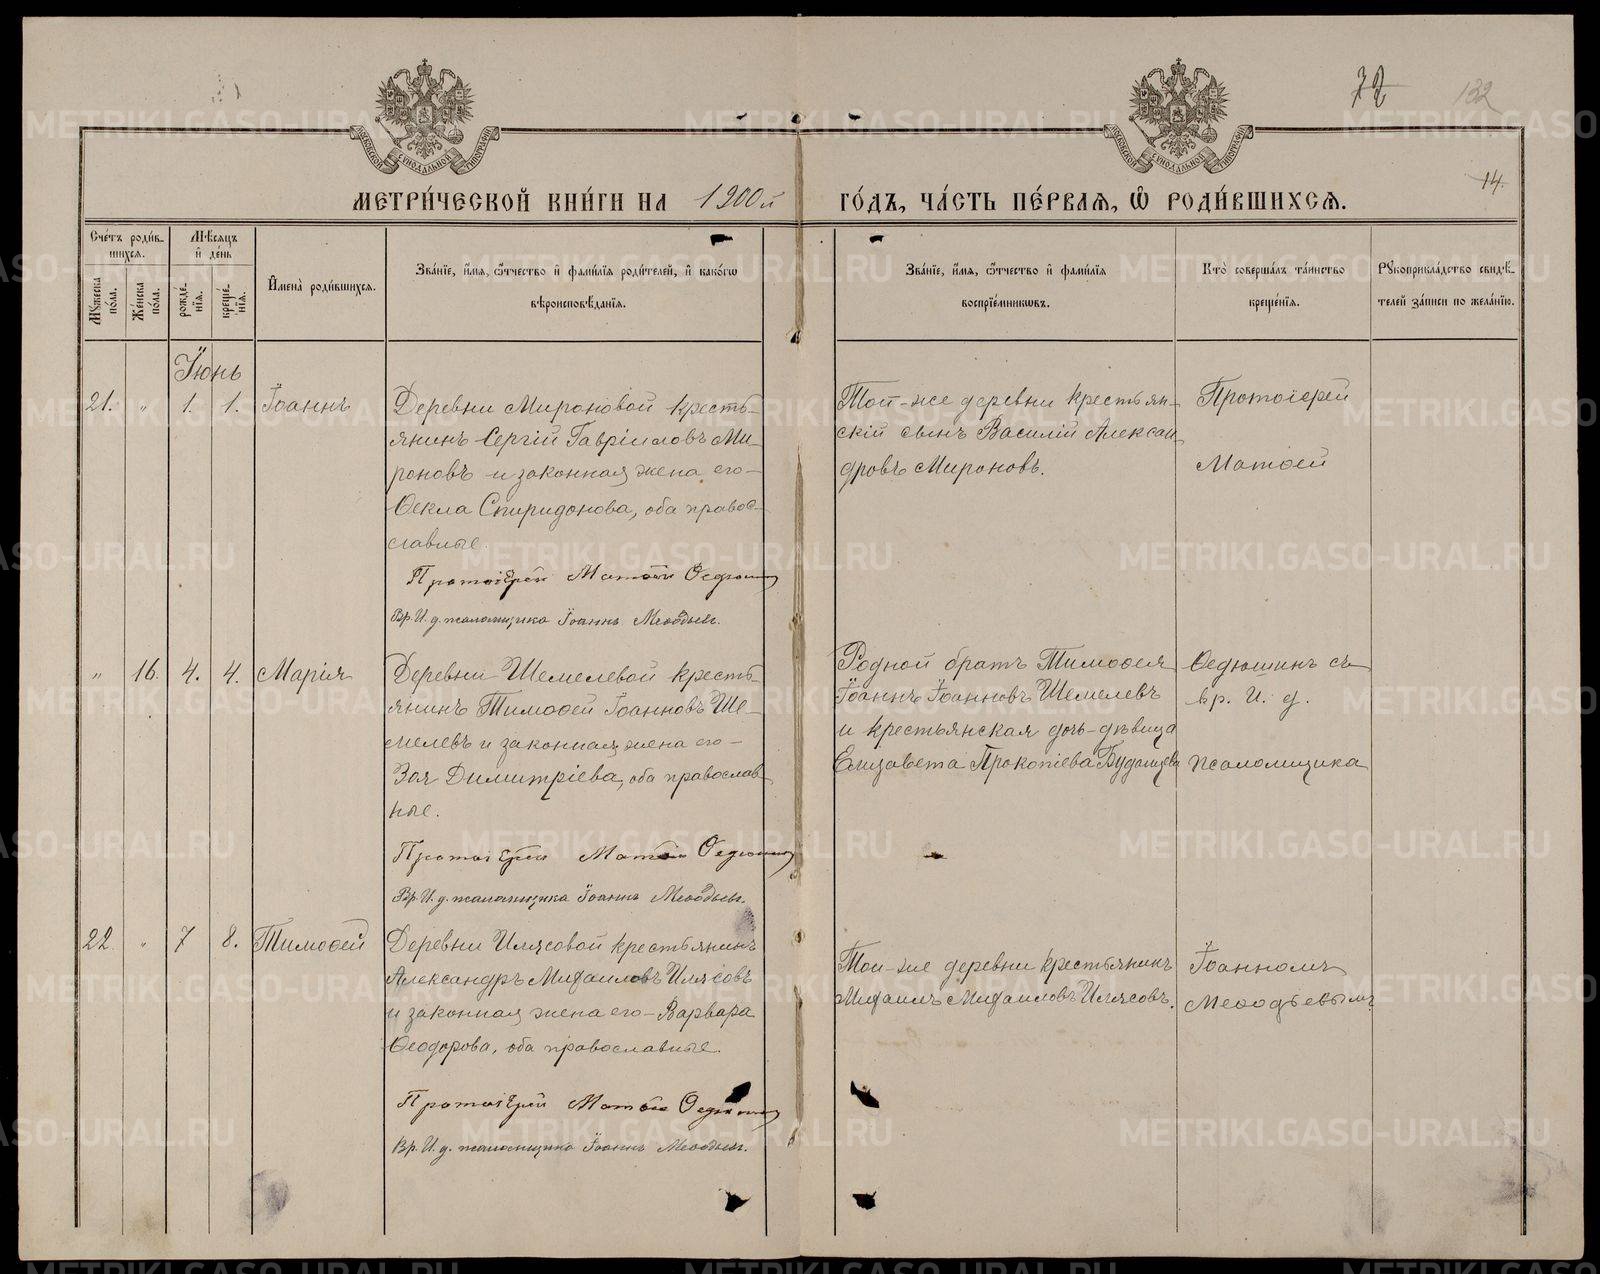 72
132
14.
МЕТРИ́ЧЕСКОЙ КНИ́ГИ НА 1900й ГО́ДЪ, ЧА́СТЬ ПЕ́РВАЯ, Ѡ҆ РОДИ́ВШИХСЯ.
Сче́тъ роди́в-
шихся.
Мꙋ́жеска по́ла.
Же́нска по́ла.
Мѣ́сяцъ и҆ де́нь
рожде́-нїя.
креще́-нїя.
И҆мена̀ роди́вшихся.
Зва́нїе, и҆́мя, ѻ҆́тчество и҆ фами́лїя роди́телей, и҆ како́гѡ
вѣроисповѣ́данїя.
Зва́нїе, и҆́мя, ѻ҆́тчество и҆ фами́лїя
воспрїе́мниковъ.
Кто̀ соверша́лъ та́инство
креще́нїя.
Рꙋкоприкла́дство свидѣ́-
телей за́писи по жела́нїю.
Іюнь
21. „ 1. 1. Іоаннъ
Деревни Мироновой кресть-
янинъ Сергій Гавріиловъ Ми-
роновъ и законная жена его-
Ѳекла Спиридонова, оба правос-
славные.
Протоіерей Матѳей Ѳедюшинъ
Вр. И. д. псаломщика Іоаннъ Меѳодьевъ.
Той-же деревни крестьян-
скій сынъ Василій Алексан-
дровъ Мироновъ.
Протоіерей
Матѳей
„ 16. 4. 4. Марія
Деревни Шемелевой кресть-
янинъ Тимоѳей Іоанновъ Ше-
мелевъ и законная жена его-
Зоя Димитріева, оба православ-
ные.
Протоіерей Матѳей Ѳедюшинъ
Вр. И. д. псаломщика Іоаннъ Меѳодьевъ.
Родной братъ Тимоѳея
Іоаннъ Іоанновъ Шемелевъ
и крестьянская дочь-дѣвица
Елизавета Прокопіева
Ѳедюшинъ съ
вр. И. д.
псаломщика
22. „ 7 8. Тимоѳей
Деревни Илясовой крестьянинъ
Александръ Михаиловъ Илясовъ
и законная жена его-Варвара
Ѳеодорова, оба православные.
Протоіерей Матѳей Ѳедюшинъ
Вр. И. д. псаломщика Іоаннъ Меѳодьевъ.
Той-же деревни крестьянинъ
Михаилъ Михаиловъ Илясовъ.
Іоанномъ
Меѳодьевымъ.
METRIKI.GASO-URAL.RU